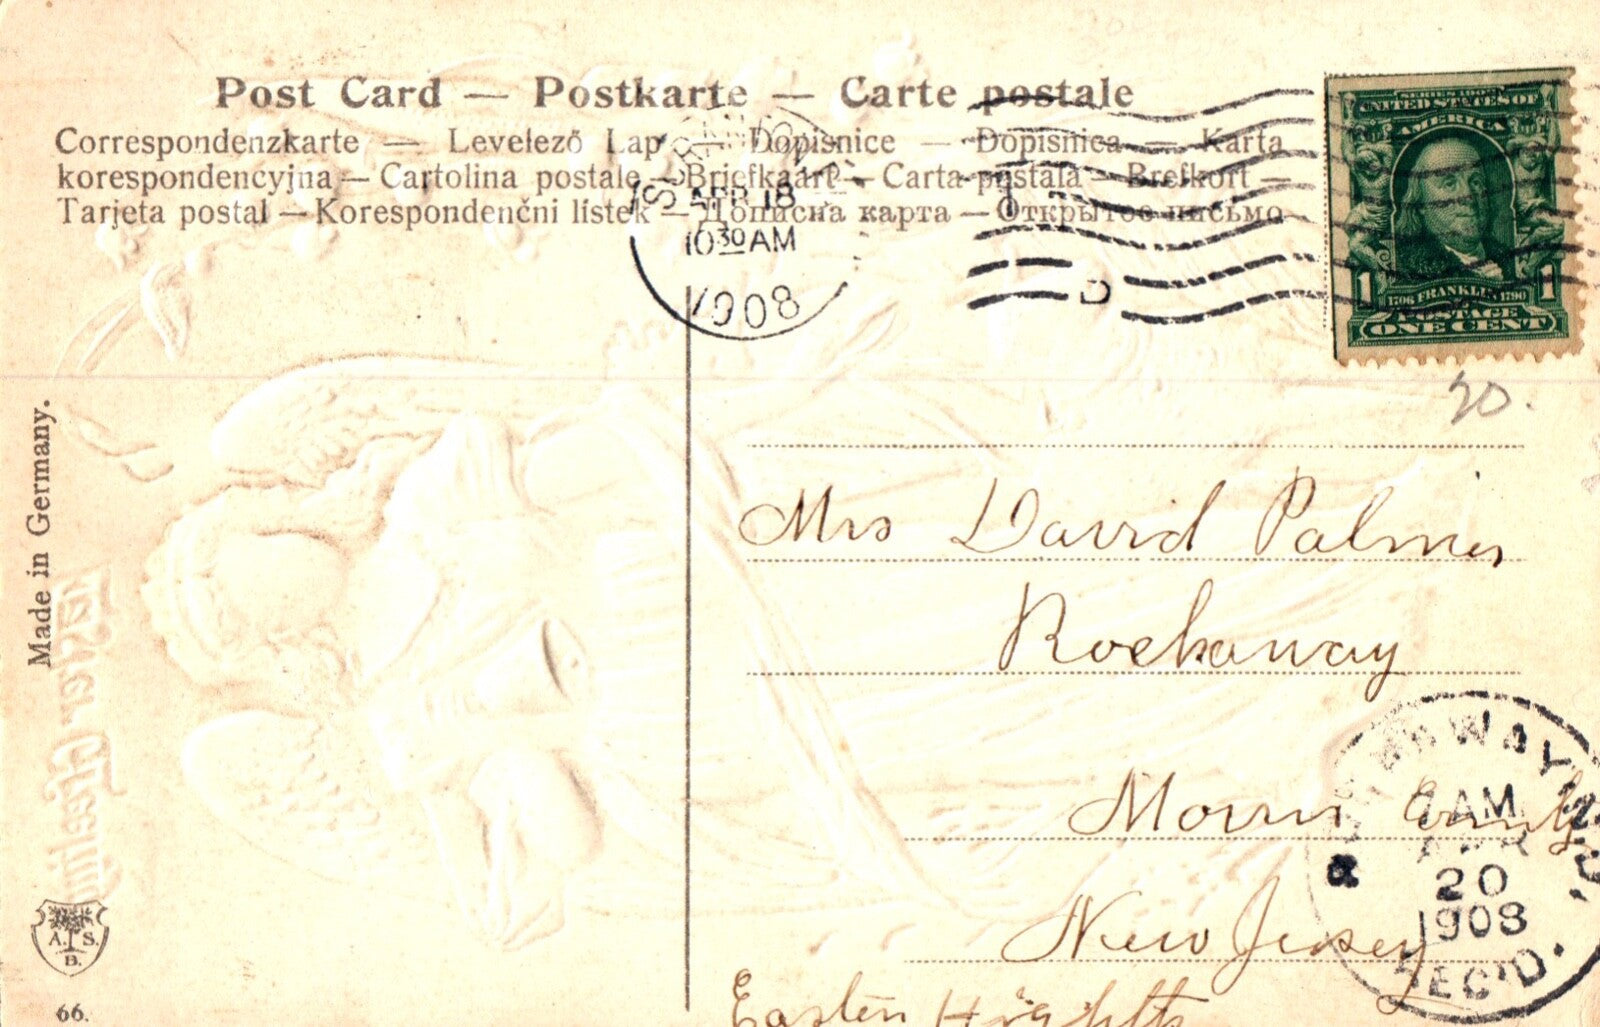 Post Card — Postkarte — Carte postale
Correspondenzkarte — Levelező Lap — Dopisnice — Dopisnica — Karta
korespondencyjna — Cartolina postale — Briefkaart — Carta postala — Brefkort —
Tarjeta postal — Korespondenční listek — Дописна карта — Открытое письмо
APR 18
10 30 AM
1908
D
SERIES 1902
UNITED STATES OF
AMERICA
1 1706 FRANKLIN 1790 1
POSTAGE
ONE CENT
20.
Made in Germany.
Mrs David Palmer
Rockaway
Morris County
New Jersey
Easten Heights
ROCKAWAY N.J.
9 AM
APR
20
1908
REC'D.
Easter Greeting
A. S.
B.
66.